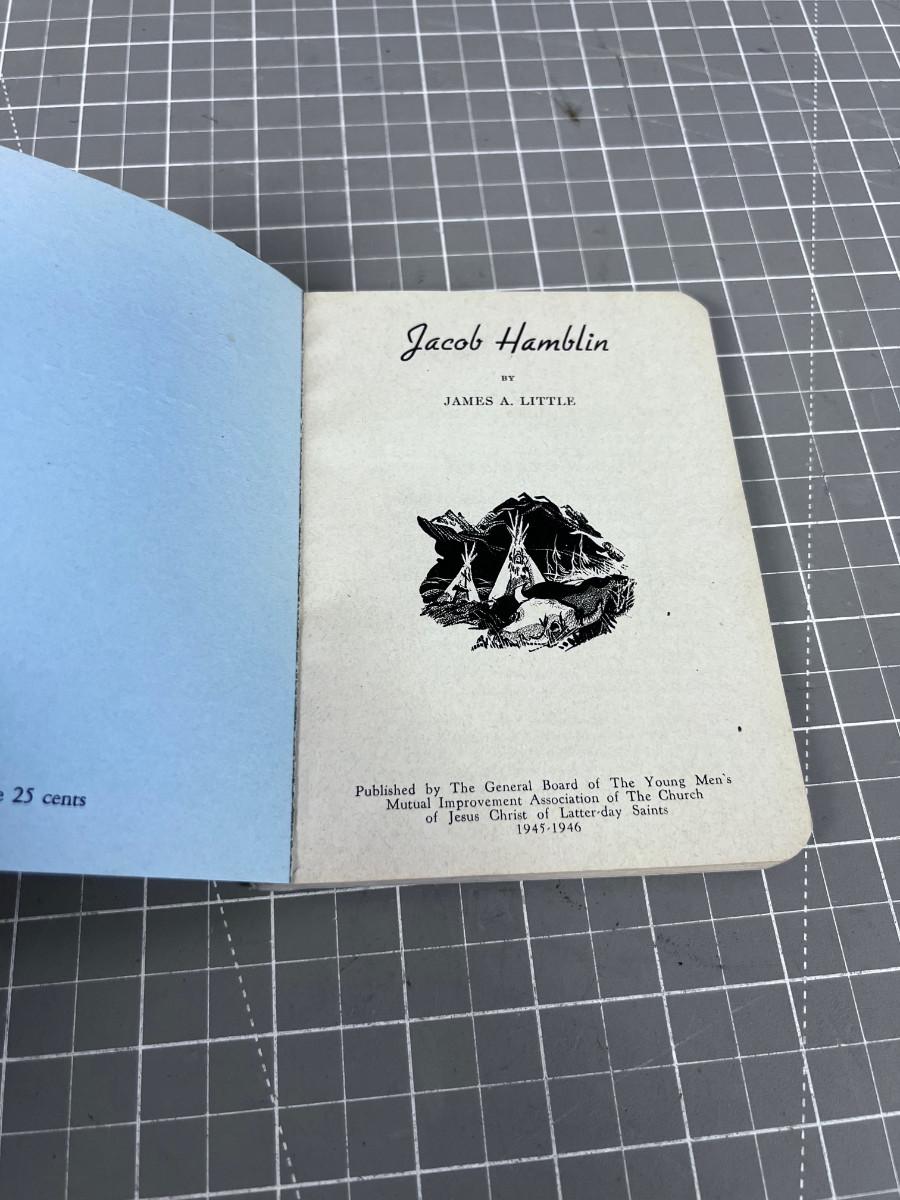 Jacob Hamblin
BY
JAMES A. LITTLE
25 cents
Published by The General Board of The Young Men's
Mutual Improvement Association of The Church
of Jesus Christ of Latter-day Saints
1945-1946